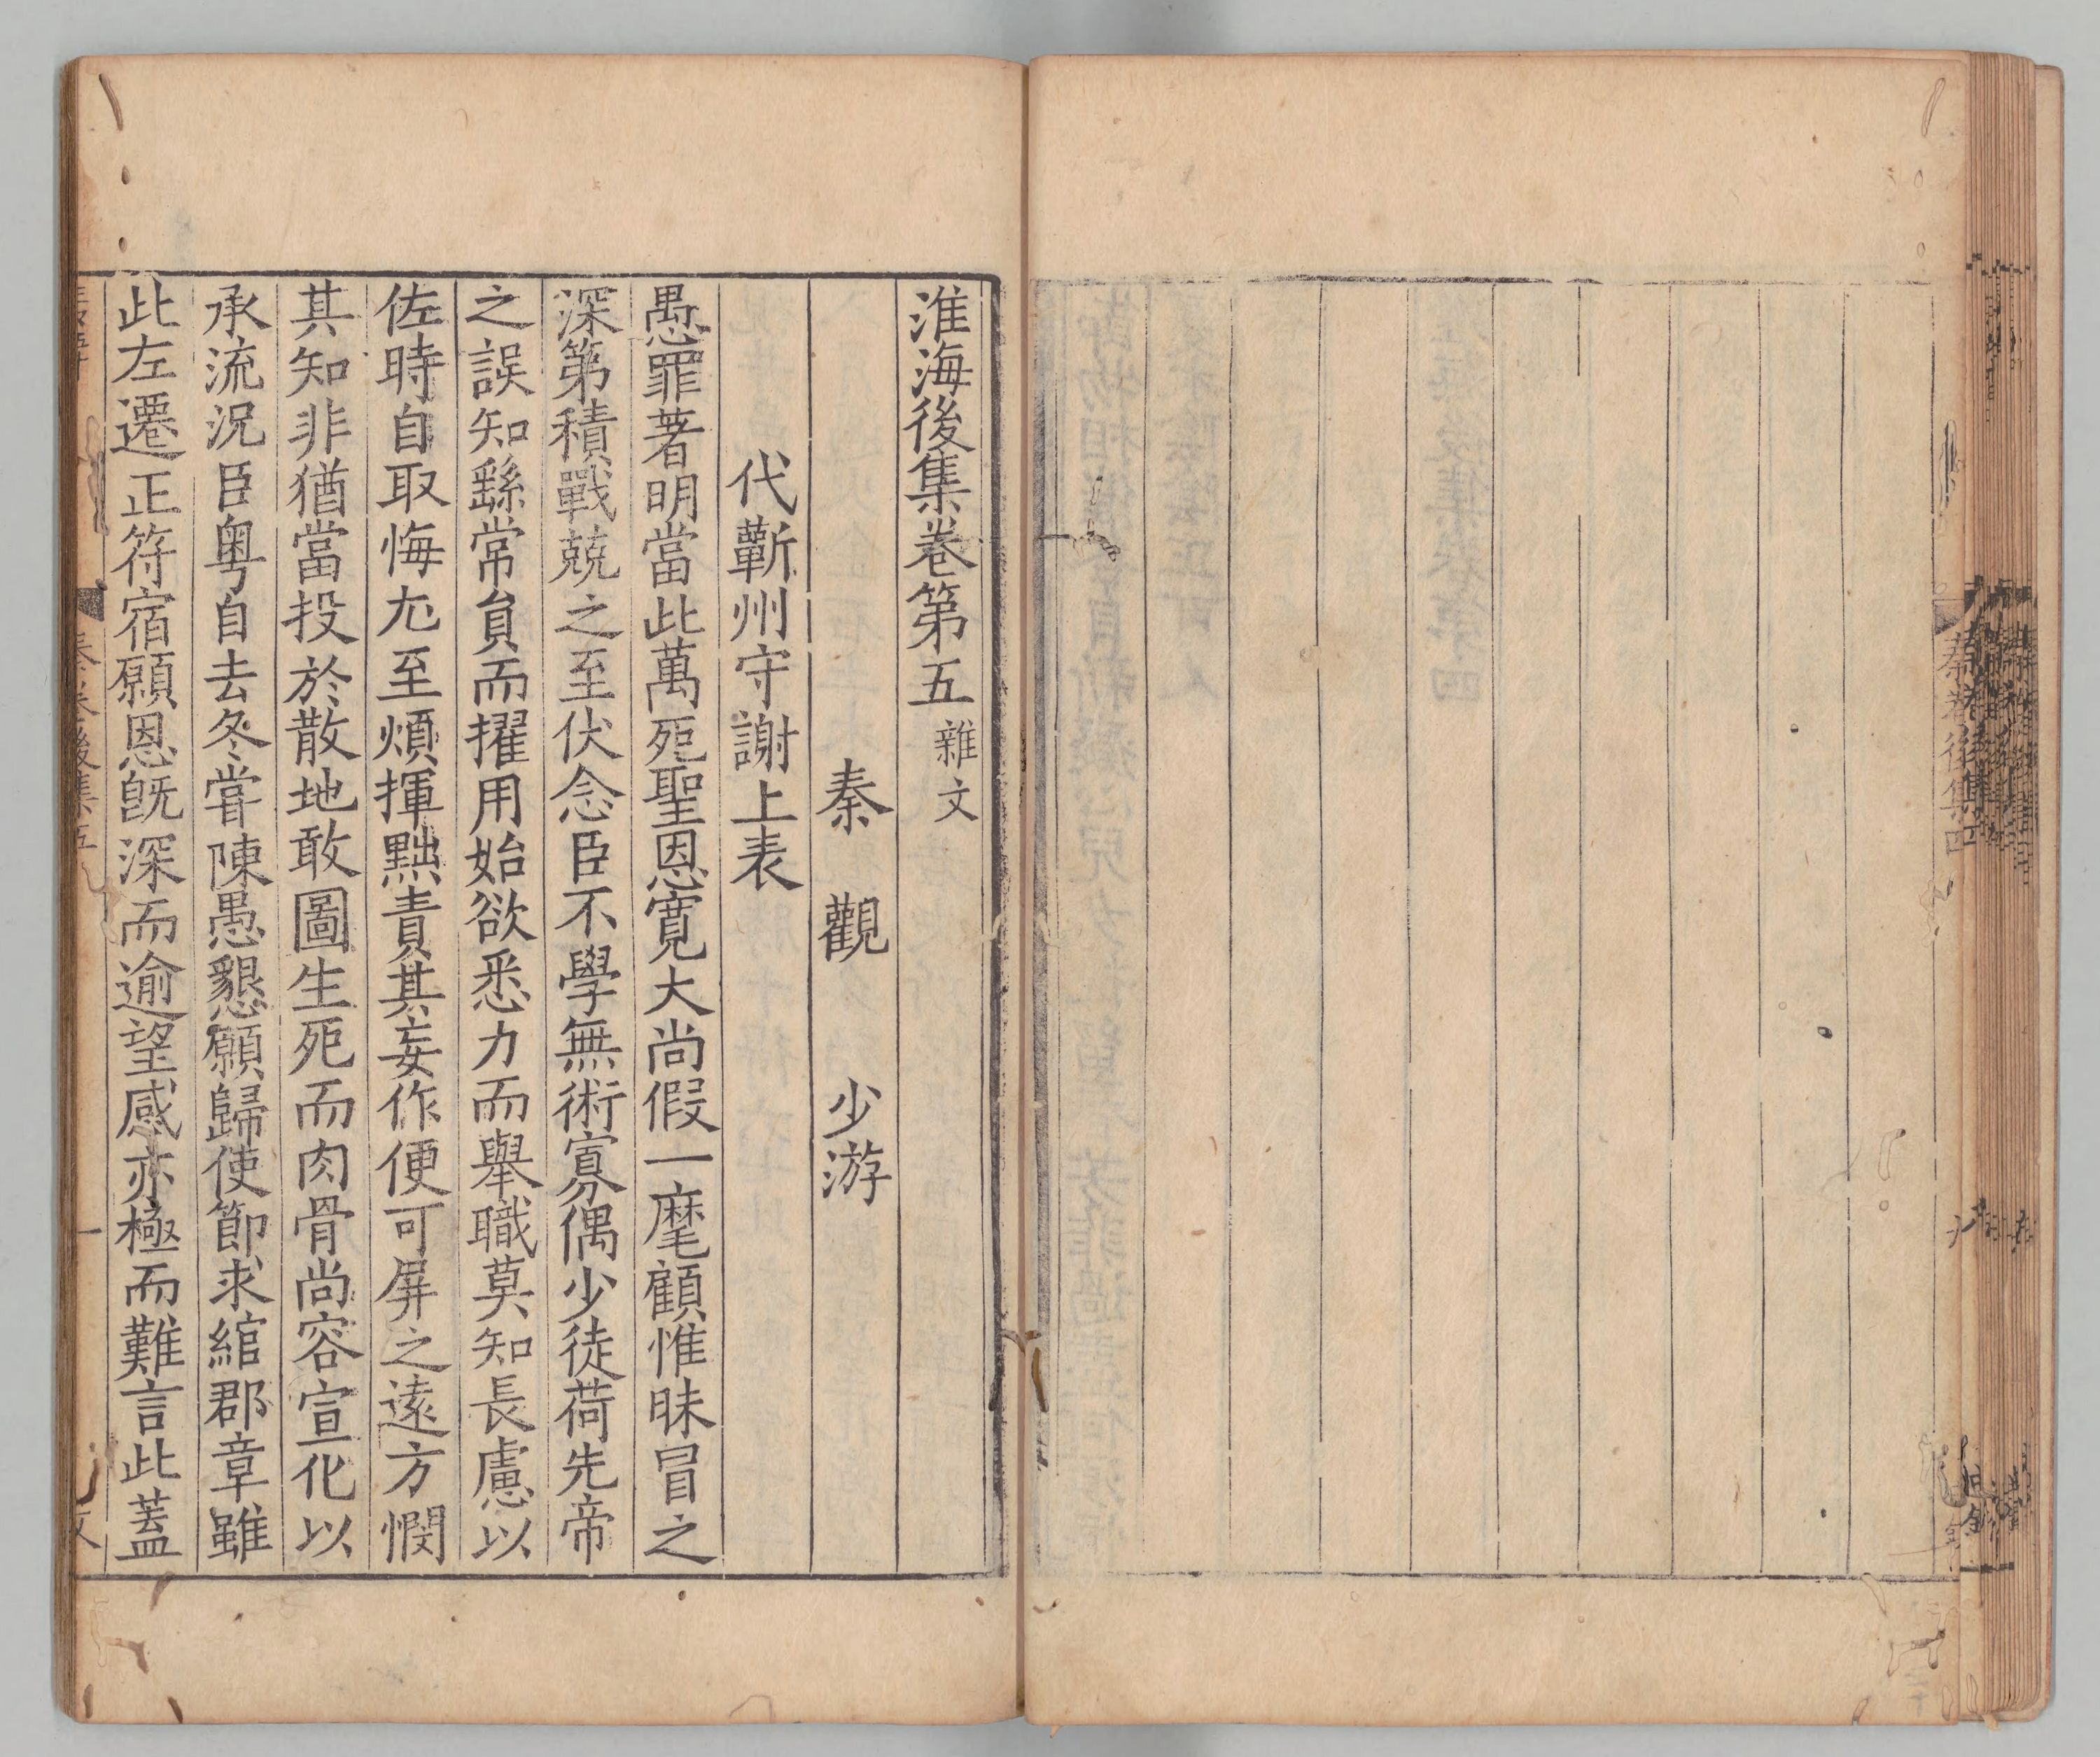 淮海後集卷第五 雜文
秦 觀 少游
代蘄州守謝上表
愚罪著明當此萬死聖恩寬大尚假一麾顧惟昧冒之
深第積戰兢之至伏念臣不學無術寡偶少徒荷先帝
之誤知繇常員而擢用始欲悉力而舉職莫知長慮以
佐時自取悔尤至煩揮黜責其妄作便可屏之遠方憫
其知非猶當投於散地敢圖生死而肉骨尚容宣化以
承流況臣粤自去冬嘗陳愚懇願歸使節求綰郡章雖
此左遷正符宿願恩旣深而逾望感亦極而難言此蓋
秦巻後集五
一
秦巻後集四